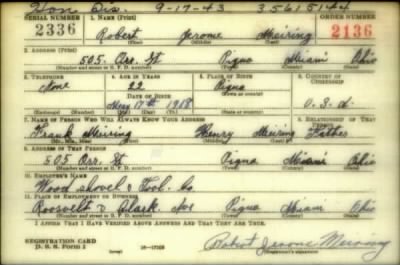 Hon Dis. 9-17-43 35615144
SERIAL NUMBER 1. NAME (Print) ORDER NUMBER
2336 Robert Jerome Meiring 2136
(First) (Middle) (Last)
2. ADDRESS (Print)
505 Orr. St Piqua Miami Ohio
(Number and street or R. F. D. number) (Town) (County) (State)
3. TELEPHONE 4. AGE IN YEARS 5. PLACE OF BIRTH 6. COUNTRY OF CITIZENSHIP
None 22 Piqua
DATE OF BIRTH (Town or county)
May 17th 1918 U.S.A.
(Exchange) (Number) (Mo.) (Day) (Yr.) (State or country)
7. NAME OF PERSON WHO WILL ALWAYS KNOW YOUR ADDRESS 8. RELATIONSHIP OF THAT PERSON
Frank Meiring Henry Meiring Father
(Mr., Mrs., Miss) (First) (Middle) (Last)
9. ADDRESS OF THAT PERSON
505 Orr. St Piqua Miami Ohio
(Number and street or R. F. D. number) (Town) (County) (State)
10. EMPLOYER'S NAME
Wood shovel & Tool. Co
11. PLACE OF EMPLOYMENT OR BUSINESS
Roosevelt & Clark. Ave Piqua Miami Ohio
(Number and street or R. F. D. number) (Town) (County) (State)
I AFFIRM THAT I HAVE VERIFIED ABOVE ANSWERS AND THAT THEY ARE TRUE.
REGISTRATION CARD
D. S. S. Form 1 16-17105 Robert Jerome Meiring